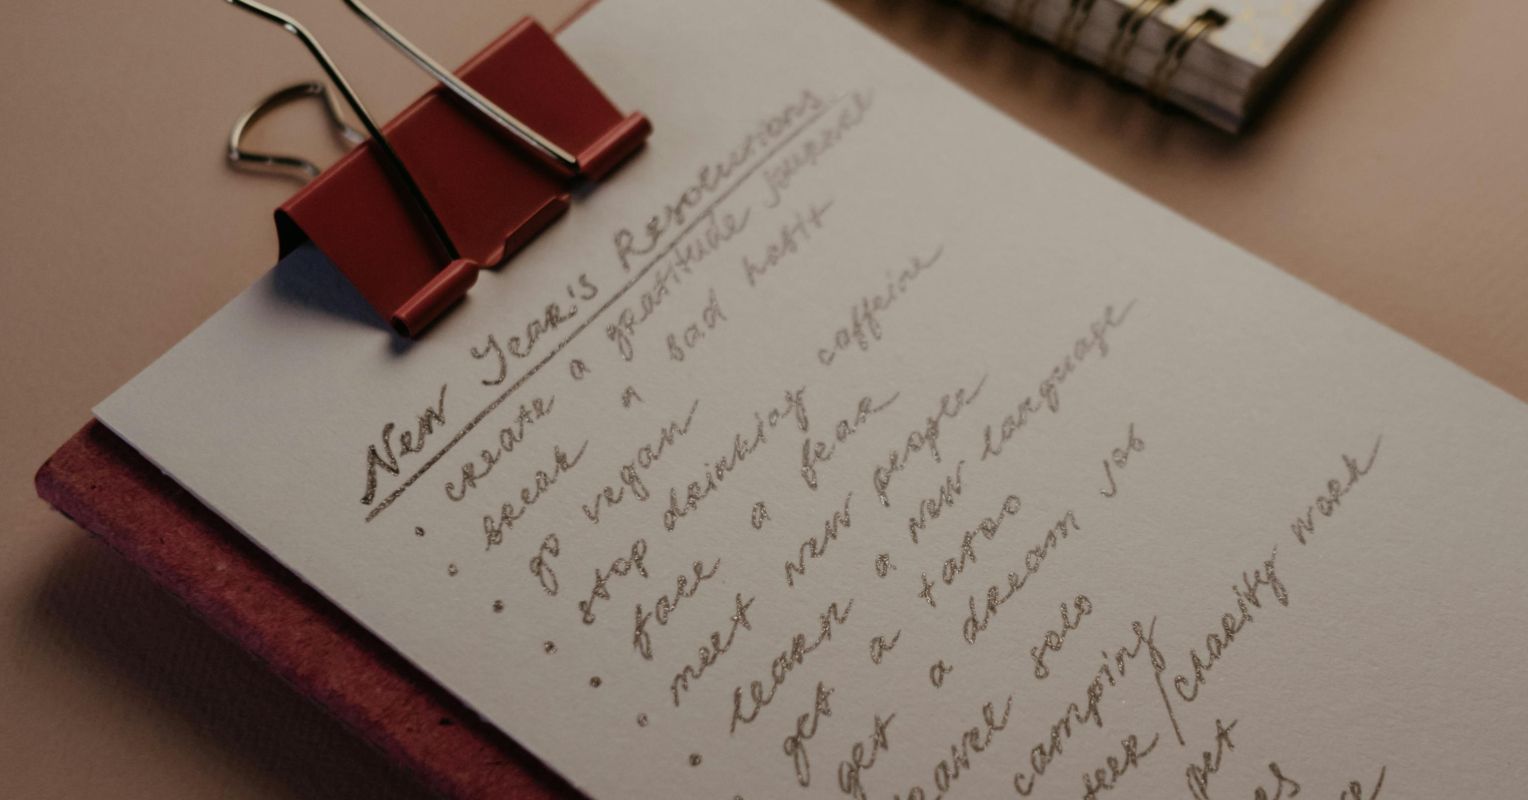 New Year's Resolutions
• create a gratitude journal
• break a bad habit
• go vegan
• stop drinking caffeine
• face a fear
• meet new people
• learn a new language
get a tatoo
get a dream job
travel solo
camping
/charity work
pet